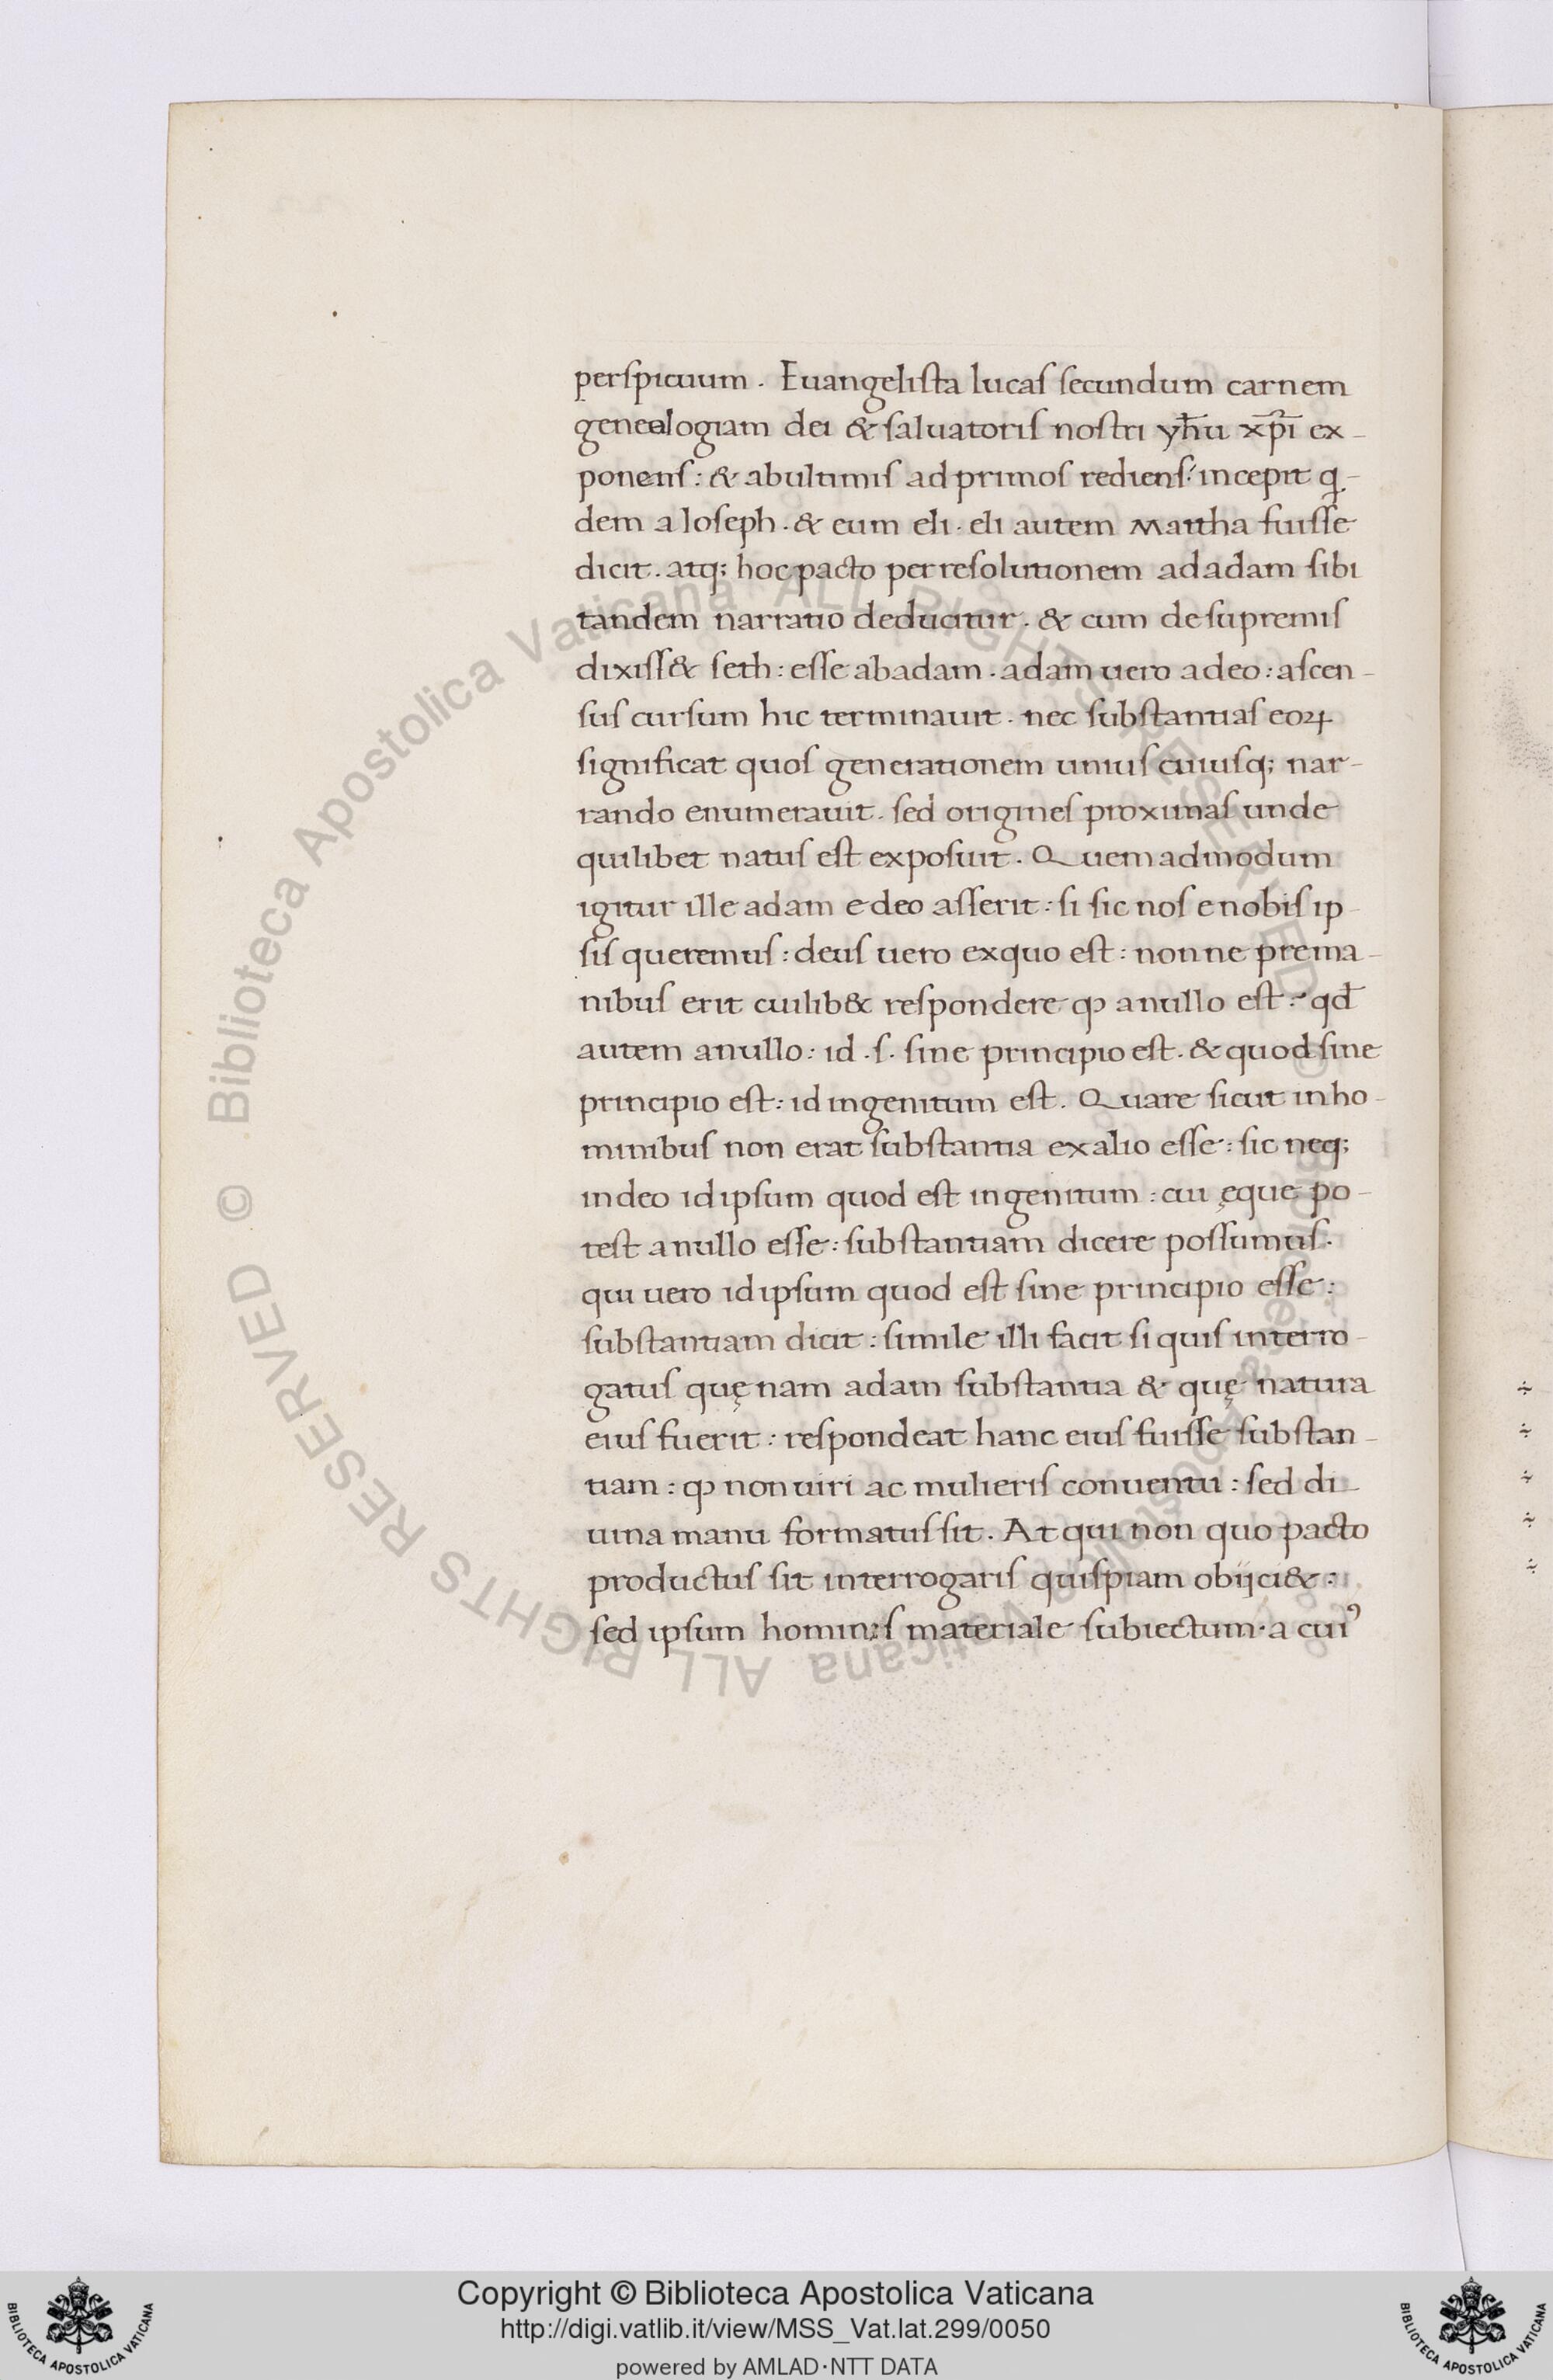 perſpicuum . Euangeliſta lucaſ ſecundum carnem
genealogiam dei & ſaluatoriſ noſtri yħu xp̄i ex-
ponenſ : & abultimiſ ad primoſ redienſ : incepit q̨-
dem a Ioſeph . & eum eli . eli autem Mattha fuiſſe
dicit . atq; hoc pacto per reſolutionem ad adam ſibi
tandem narratio deducitur . & cum de ſupremiſ
dixiſſ& ſeth : eſſe abadam . adam uero a deo : aſcen-
ſuſ curſum hic terminauit . nec ſubſtantiaſ eoꝝ
ſignificat quoſ generationem uniuſ cuiuſq; nar-
rando enumerauit . ſed origineſ proximaſ unde
quilibet natuſ eſt expoſuit . Quem admodum
igitur ille adam e deo aſſerit : ſi ſic noſ e nobiſ ip-
ſiſ queremuſ : deuſ uero ex quo eſt : non ne pre ma-
nibuſ erit cuilib& reſpondere ꝙ a nullo eſt : qđ
autem a nullo : id . ſ . ſine principio eſt . & quod ſine
principio eſt : id ingenitum eſt . Quare ſicut in ho-
minibuſ non erat ſubſtantia ex alio eſſe : ſic neq;
in deo id ipſum quod eſt ingenitum : cui ęque po-
teſt a nullo eſſe : ſubſtantiam dicere poſſumuſ .
qui uero id ipſum quod eſt ſine principio eſſe :
ſubſtantiam dicit : ſimile illi facit ſi quiſ interro-
gatuſ quęnam adam ſubſtantia & quę natura
eiuſ fuerit : reſpondeat hanc eiuſ fuiſſe ſubſtan-
tiam : ꝙ non uiri ac mulieriſ conuentu : ſed di-
uina manu formatuſ ſit . At qui non quo pacto
productuſ ſit interrogariſ quiſpiam obijci& :
ſed ipſum hominiſ materiale ſubiectum . a cuiꝰ
© Biblioteca Apostolica Vaticana ALL RIGHTS RESERVED © Biblioteca Apostolica Vaticana ALL RIGHTS RESERVED
Copyright © Biblioteca Apostolica Vaticana
http://digi.vatlib.it/view/MSS_Vat.lat.299/0050
powered by AMLAD·NTT DATA
BIBLIOTECA APOSTOLICA VATICANA
BIBLIOTECA APOSTOLICA VATICANA